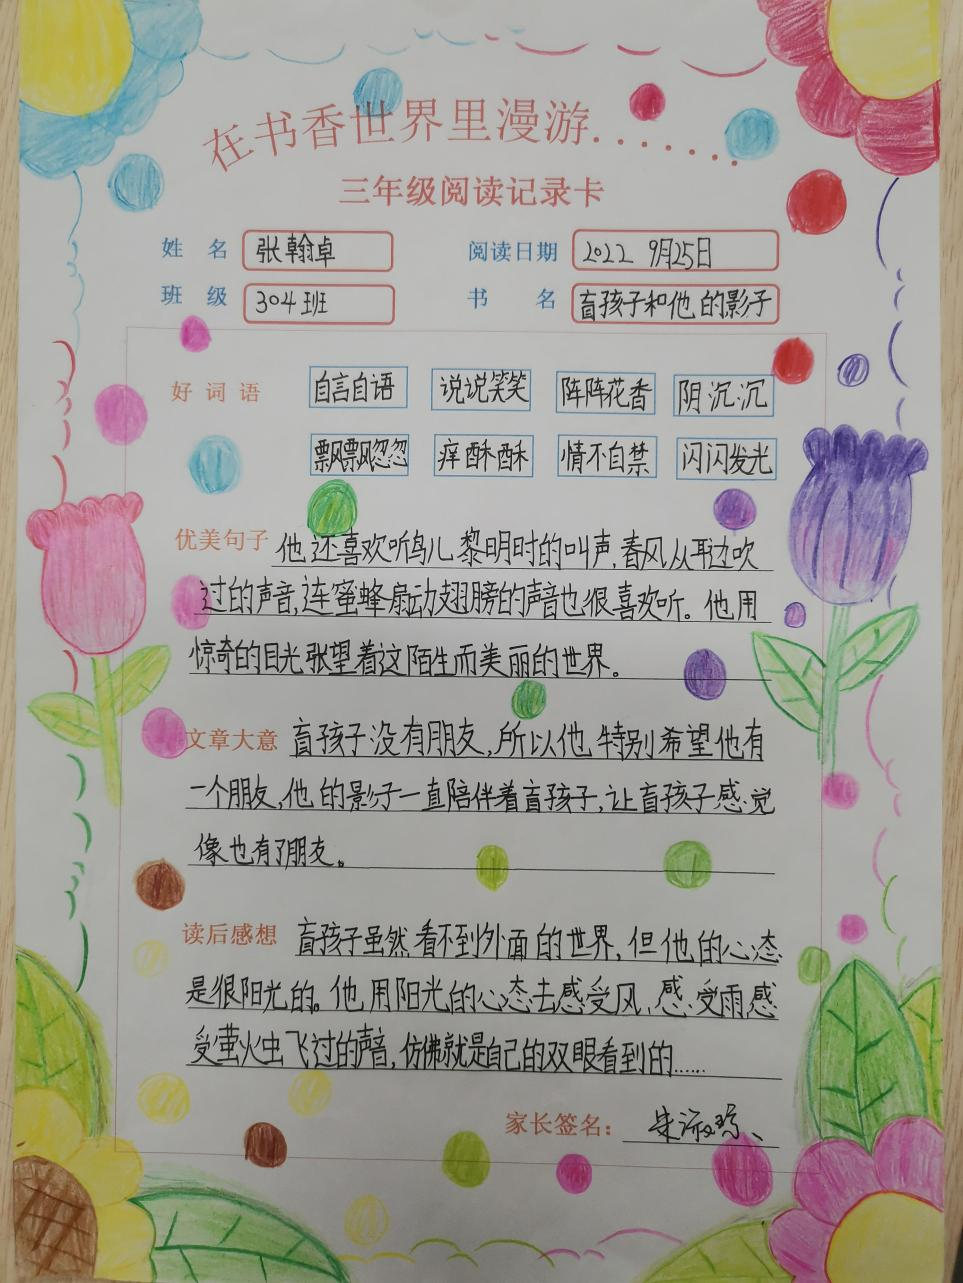 在书香世界里漫游......
三年级阅读记录卡
姓 名 张翰卓 阅读日期 2022 9月25日
班 级 304班 书 名 盲孩子和他的影子
好 词 语 自言自语 说说笑笑 阵阵花香 阴沉沉
飘飘忽忽 痒酥酥 情不自禁 闪闪发光
优美句子 他还喜欢听鸟儿黎明时的叫声,春风从耳边吹
过的声音,连蜜蜂扇动翅膀的声音也很喜欢听。他用
惊奇的目光张望着这陌生而美丽的世界。
文章大意 盲孩子没有朋友,所以他特别希望他有
一个朋友,他的影子一直陪伴着盲孩子,让盲孩子感觉
像也有了朋友。
读后感想 盲孩子虽然看不到外面的世界,但他的心态
是很阳光的。他用阳光的心态去感受风,感受雨感
受萤火虫飞过的声音,仿佛就是自己的双眼看到的......
家长签名: 朱